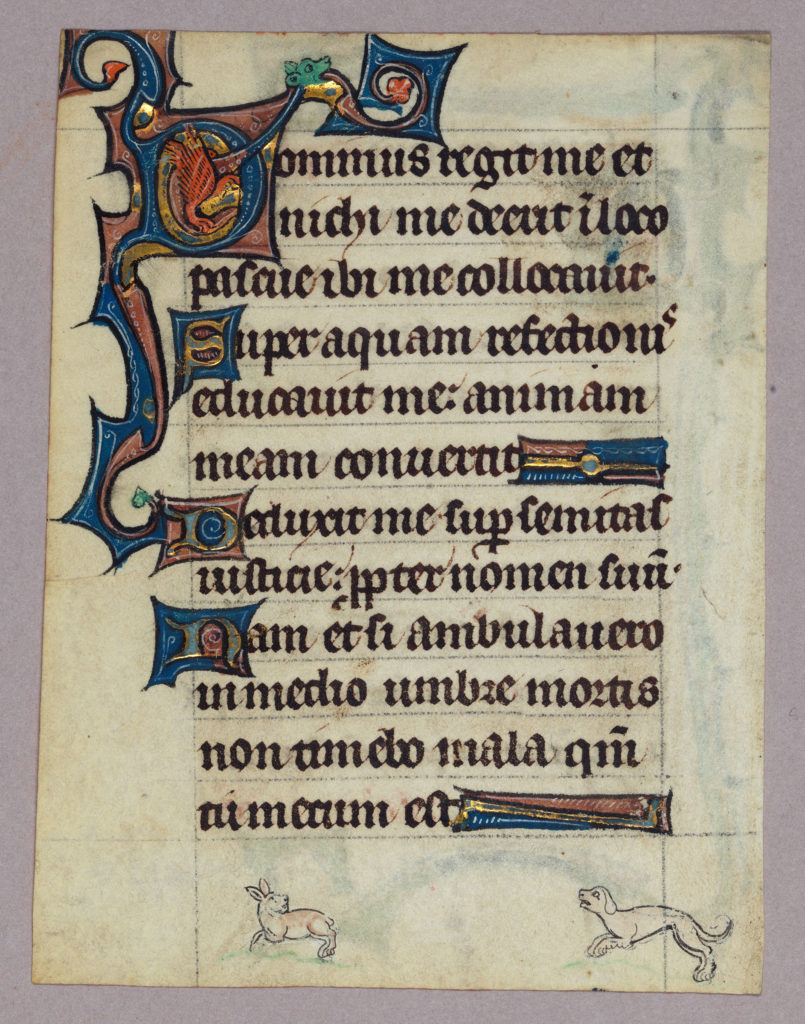 Dominus regit me et
nichi me deerit ī loco
pascue ibi me collocauit.
Super aquam refectionis
educauit me: animam
meam conuertit
Deduxit me suꝑ semitas
iusticie: ꝓpter nomen suū.
Nam et si ambulauero
in medio umbre mortis
non timebo mala qm̄
tu mecum est